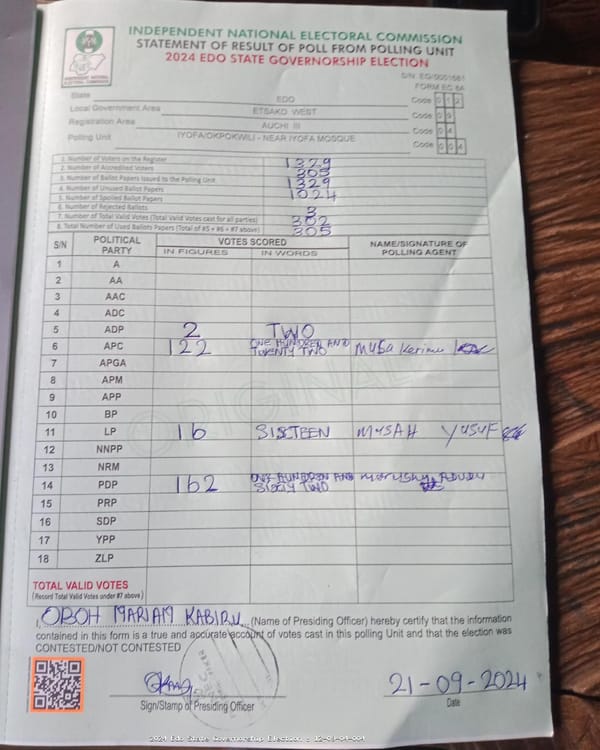 INDEPENDENT NATIONAL ELECTORAL COMMISSION
STATEMENT OF RESULT OF POLL FROM POLLING UNIT
2024 EDO STATE GOVERNORSHIP ELECTION
INDEPENDENT NATIONAL ELECTORAL COMMISSION
S/N: EG/0001681
FORM EC 8A
State EDO Code 012
Local Government Area ETSAKO WEST Code 09
Registration Area AUCHI III Code 04
Polling Unit IYOFA/OKPOKWILI - NEAR IYOFA MOSQUE Code 004
1. Number of Voters on the Register 1329
2. Number of Accredited Voters 305
3. Number of Ballot Papers Issued to the Polling Unit 1329
4. Number of Unused Ballot Papers 1024
5. Number of Spoiled Ballot Papers
6. Number of Rejected Ballots 3
7. Number of Total Valid Votes (Total Valid Votes cast for all parties) 302
8. Total Number of Used Ballots Papers (Total of #5 + #6 + #7 above) 305
S/N POLITICAL PARTY VOTES SCORED NAME/SIGNATURE OF POLLING AGENT
IN FIGURES IN WORDS
1 A
2 AA
3 AAC
4 ADC
5 ADP 2 TWO
6 APC 122 ONE HUNDRED AND TWENTY TWO Musa Kerimu
7 APGA
8 APM
9 APP
10 BP
11 LP 16 SISTEEN MUSAH YUSUF
12 NNPP
13 NRM
14 PDP 162 ONE HUNDRED AND SIXTY TWO
15 PRP
16 SDP
17 YPP
18 ZLP
ORIGINAL
TOTAL VALID VOTES
(Record Total Valid Votes under #7 above)
I, OBOH MARIAM KABIRU (Name of Presiding Officer) hereby certify that the information
contained in this form is a true and accurate account of votes cast in this polling Unit and that the election was
CONTESTED/NOT CONTESTED
21-09-2024
Sign/Stamp of Presiding Officer Date
2024 Edo State Governorship Election : 12-09-04-004